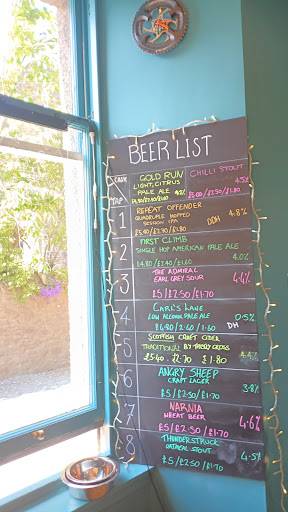 BEER LIST
CASK
GOLD RUN
LIGHT, CITRUS
PALE ALE 4.2%
CHILLI STOUT
4.5%
£5.00/£2.50/£1.80
TAP
1
REPEAT OFFENDER
QUADRUPLE HOPPED
SESSION IPA
DDH 4.8%
2
FIRST CLIMB
SINGLE HOP AMERICAN PALE ALE
4.0%
£4.80/£2.40/£1.60
3
THE ADMIRAL
EARL GREY SOUR
4.4%
£5/£2.50/£1.70
4
CARL'S LANE
LOW ALCOHOL PALE ALE
0.5%
DH
5
SCOTTISH CRAFT CIDER
TRADITIONAL BY THISTLY CROSS
£5.40. £2.70 £1.80
4.4%
6
ANGRY SHEEP
CRAFT LAGER
3.8%
£5/£2.50/£1.70
7
NARNIA
WHEAT BEER
4.6%
£5/£2.50/£1.70
8
THUNDERSTRUCK
OATMEAL STOUT
4.5%
£5/£2.50/£1.70